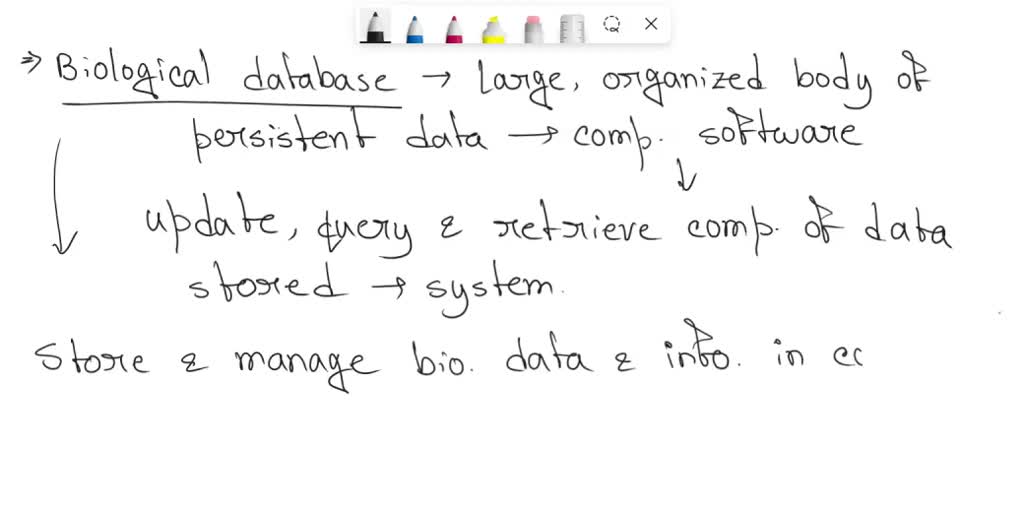 ⇒ Biological database → Large, organized body of
persistent data → comp. software
update, query & retrieve comp. of data
stored → system.
Store & manage bio. data & info. in co